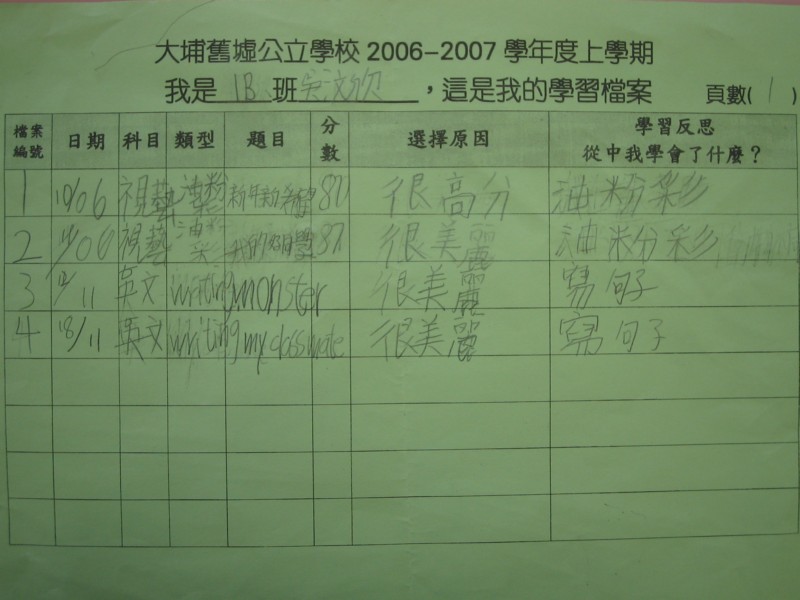 大埔舊墟公立學校 2006-2007 學年度上學期
我是 1B 班 吳文欣 ,這是我的學習檔案 頁數( 1 )
檔案編號 日期 科目 類型 題目 分數 選擇原因 學習反思 從中我學會了什麼?
1 視藝 油粉彩 很高分 油粉彩
2 視藝 油粉彩 我的 87 很美麗 油粉彩
3 英文 writing monster 很美麗 寫句子
4 18/11 英文 writing my classmate 很美麗 寫句子